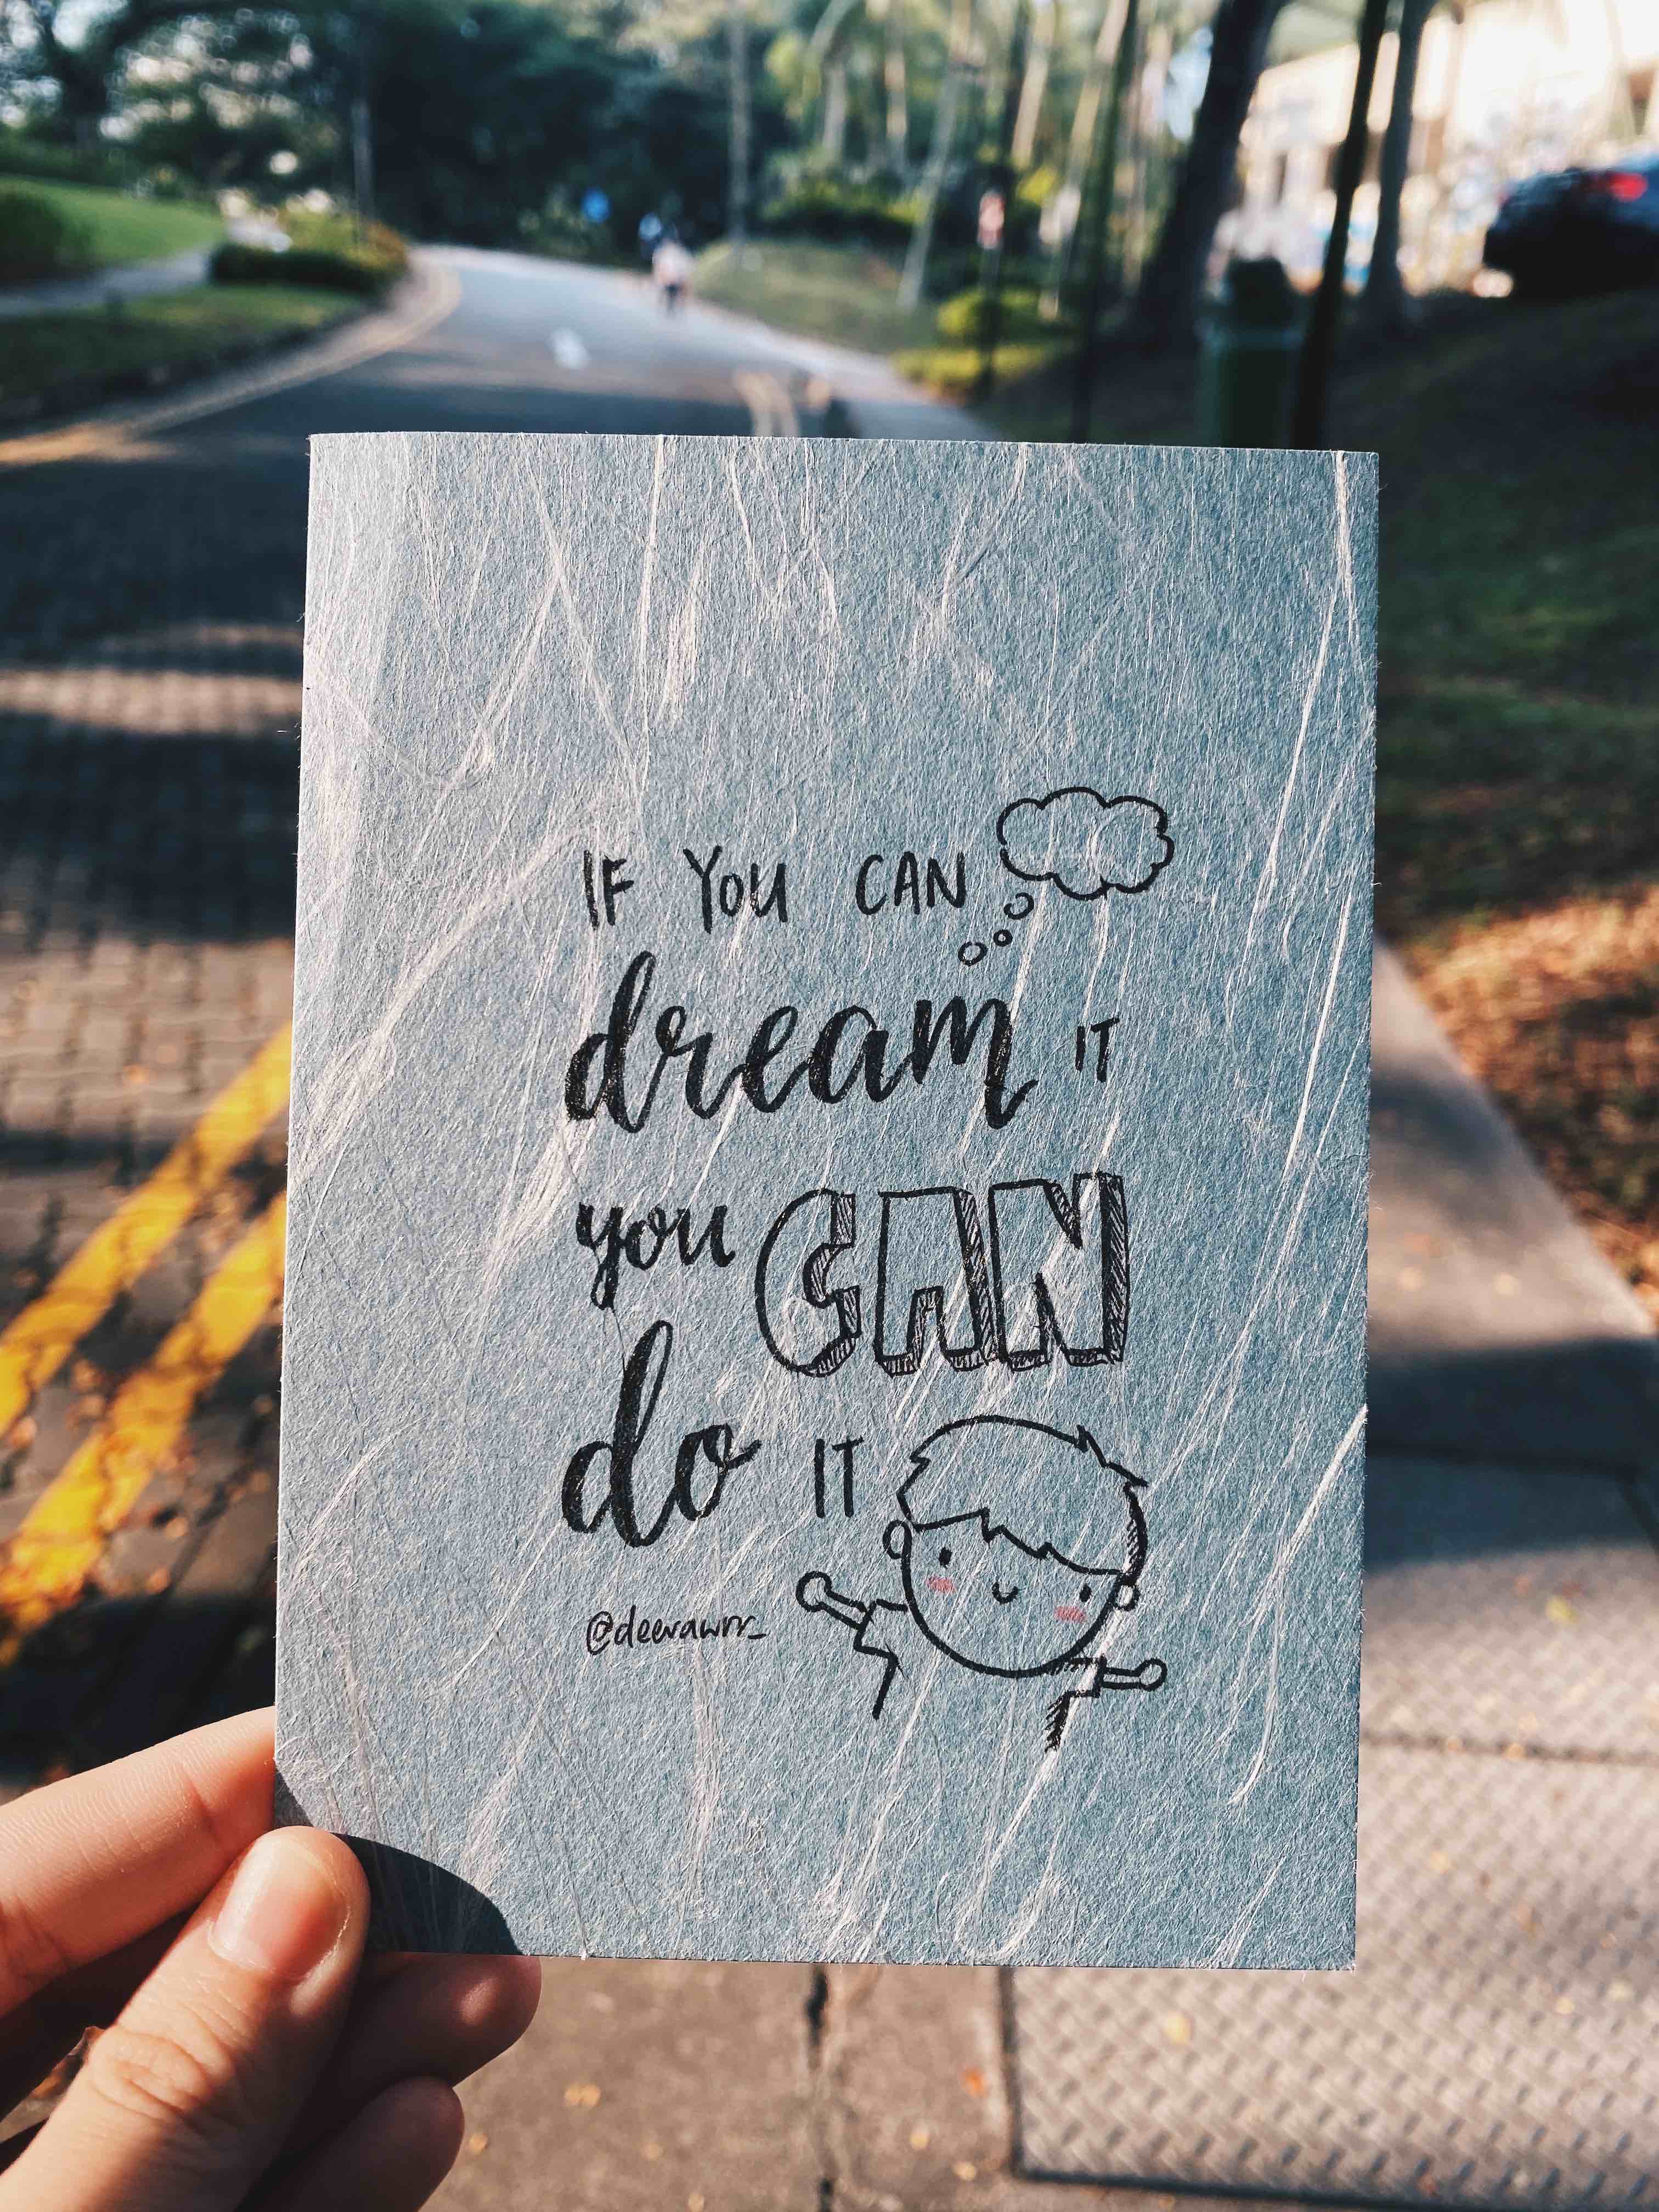 IF YOU CAN
dream IT
you CAN
do IT
@deerawrr_